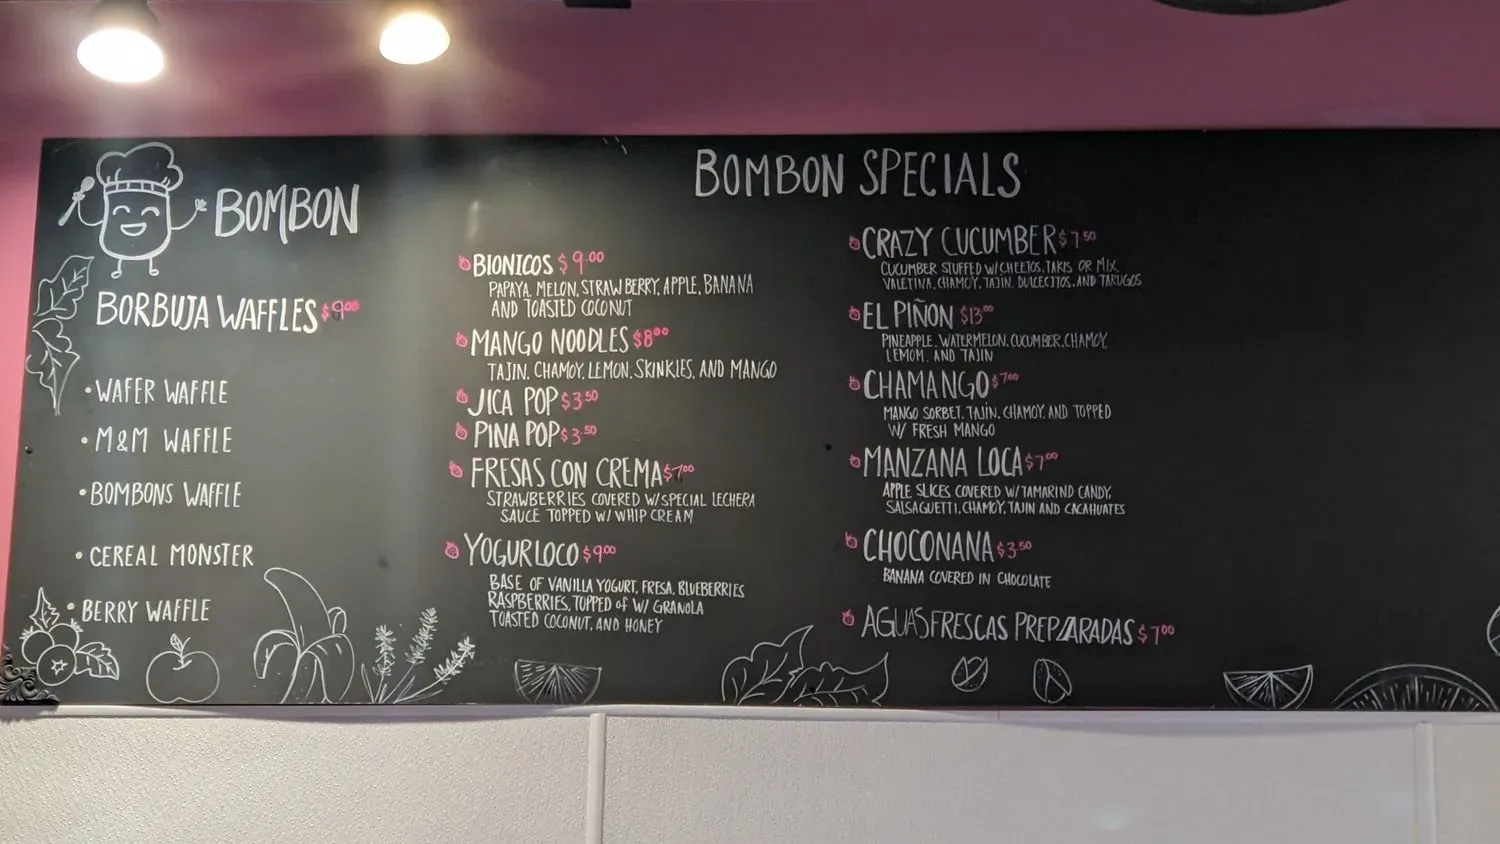 BOMBON
BORBUJA WAFFLES $9.00
• WAFER WAFFLE
• M&M WAFFLE
• BOMBONS WAFFLE
• CEREAL MONSTER
• BERRY WAFFLE
BOMBON SPECIALS
BIONICOS $9.00
PAPAYA, MELON, STRAWBERRY, APPLE, BANANA
AND TOASTED COCONUT
MANGO NOODLES $8.00
TAJIN, CHAMOY, LEMON, SKINKIES, AND MANGO
JICA POP $3.50
PINA POP $3.50
FRESAS CON CREMA $7.00
STRAWBERRIES COVERED W/SPECIAL LECHERA
SAUCE TOPPED W/ WHIP CREAM
YOGURLOCO $9.00
BASE OF VANILLA YOGURT, FRESA, BLUEBERRIES
RASPBERRIES, TOPPED of W/ GRANOLA
TOASTED COCONUT, AND HONEY
CRAZY CUCUMBER $7.50
CUCUMBER STUFFED W/CHEETOS, TAKIS OR MIX,
VALETINA, CHAMOY, TAJIN, DULCECITOS, AND TARUGOS
EL PIÑON $13.00
PINEAPPLE, WATERMELON, CUCUMBER, CHAMOY,
LEMOM, AND TAJIN
CHAMANGO $7.00
MANGO SORBET, TAJIN, CHAMOY, AND TOPPED
W/ FRESH MANGO
MANZANA LOCA $7.00
APPLE SLICES COVERED W/TAMARIND CANDY,
SALSAGUETTI, CHAMOY, TAJIN AND CACAHUATES
CHOCONANA $3.50
BANANA COVERED IN CHOCOLATE
AGUAS FRESCAS PREPARADAS $7.00